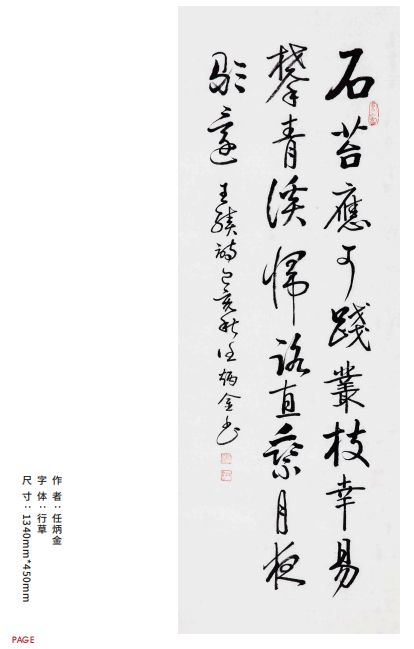 石苔應可踐叢枝幸易
攀青溪歸路直乘月夜
歌還
王績詩己亥秋任炳金書
作者：任炳金
字体：行草
尺寸：1340mm*450mm
PAGE